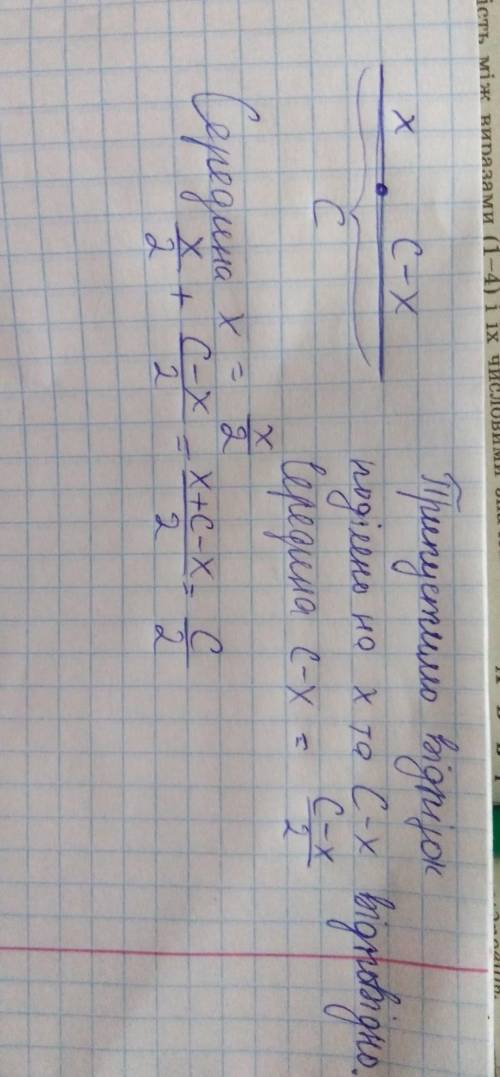 ність між виразами (1–4) і їх числовими
x C-x
C
Припустимо відрізок
поділено на x та C-x відповідно.
Середина C-x = \frac{C-x}{2}
Середина x = \frac{x}{2}
\frac{x}{2} + \frac{C-x}{2} = \frac{x+C-x}{2} = \frac{C}{2}